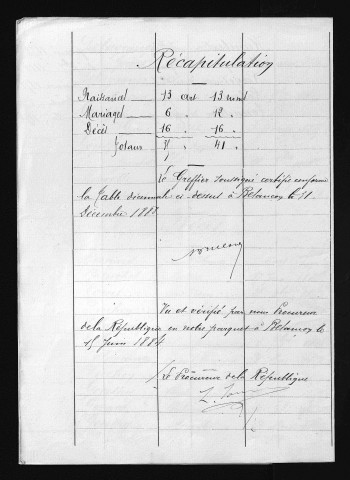 Récapitulation
Naissances 13 act 13 nom
Mariages 6 " 12 "
Décès 16 " 16 "
Totaux 41 "
Le Greffier soussigné certifie conforme
la Table décennale ci-dessus à le 31
Décembre 188
Vu et vérifié par nous Procureur
de la République en notre parquet à le
15 Juin 1884
Le Procureur de la République